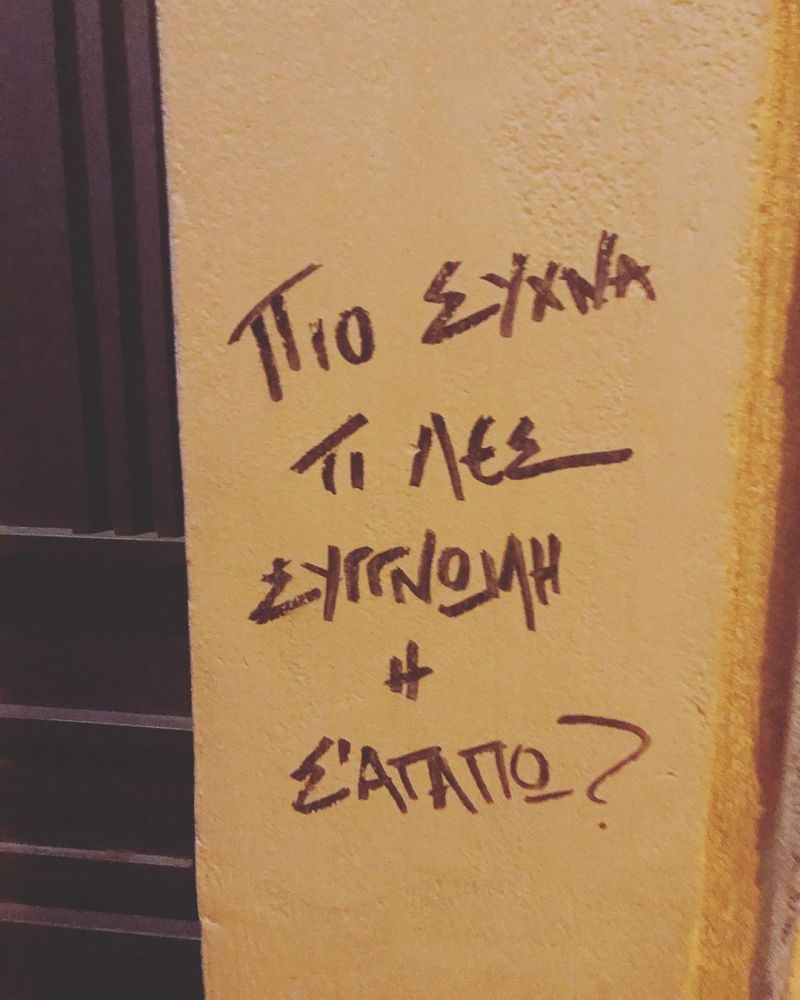 ΠΙΟ ΣΥΧΝΑ
ΤΙ ΛΕΣ
ΣΥΓΓΝΩΜΗ
Η
Σ'ΑΓΑΠΩ?